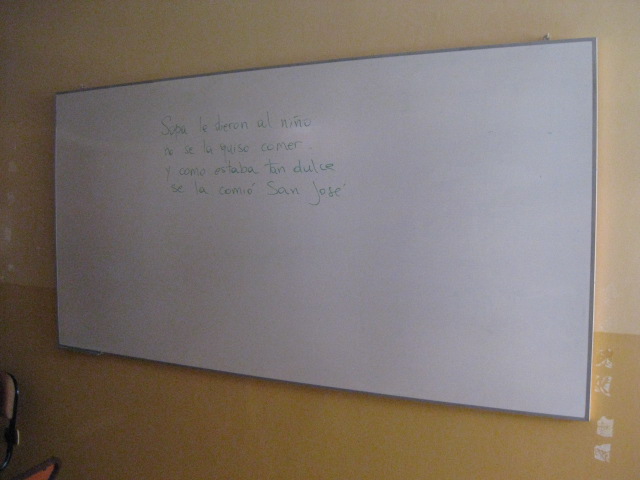 Sopa le dieron al niño
no se la quiso comer.
y como estaba tan dulce
se la comió San José